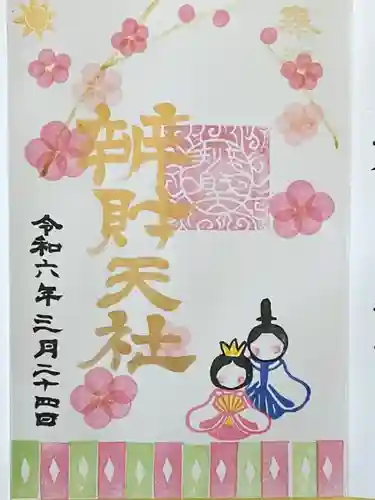 奉拝
辨財天社
令和六年三月二十四日